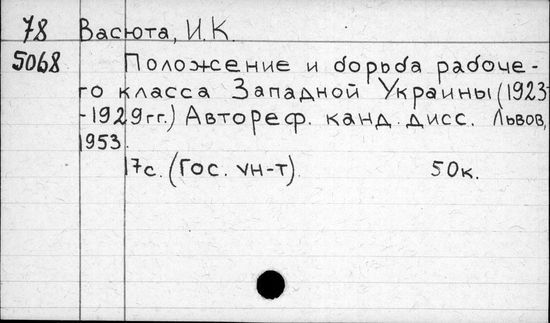 78 Васюта, И.К.
5068 Положение и борьба рабоче-
го класса Западной Украины (1923-
-1929гг.) Автореф. канд. дисс. Львов,
1953.
17с. (Гос. ун-т). 50к.